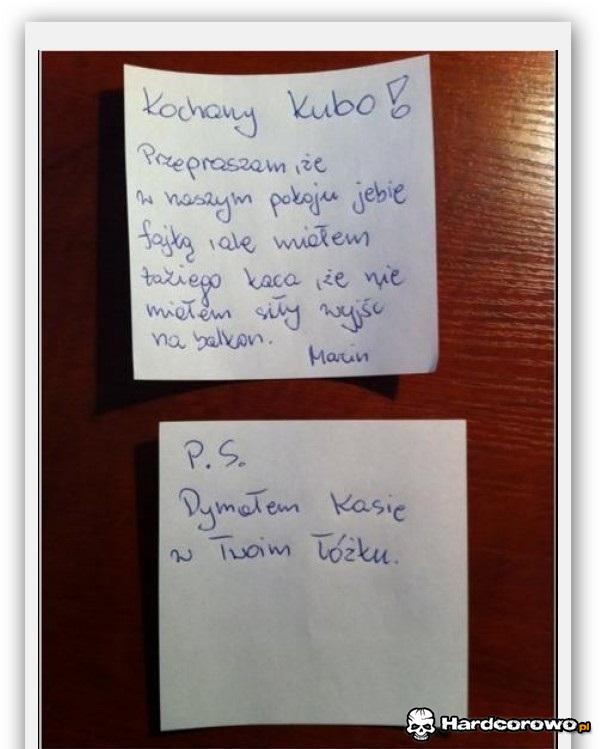 Kochany Kubo!
Przepraszam, że
w naszym pokoju jebie
fajką, ale miałem
takiego kaca, że nie
miałem siły wyjść
na balkon.
Marcin
P.S.
Dymałem Kasię
w Twoim łóżku.
Hardcorowo.pl